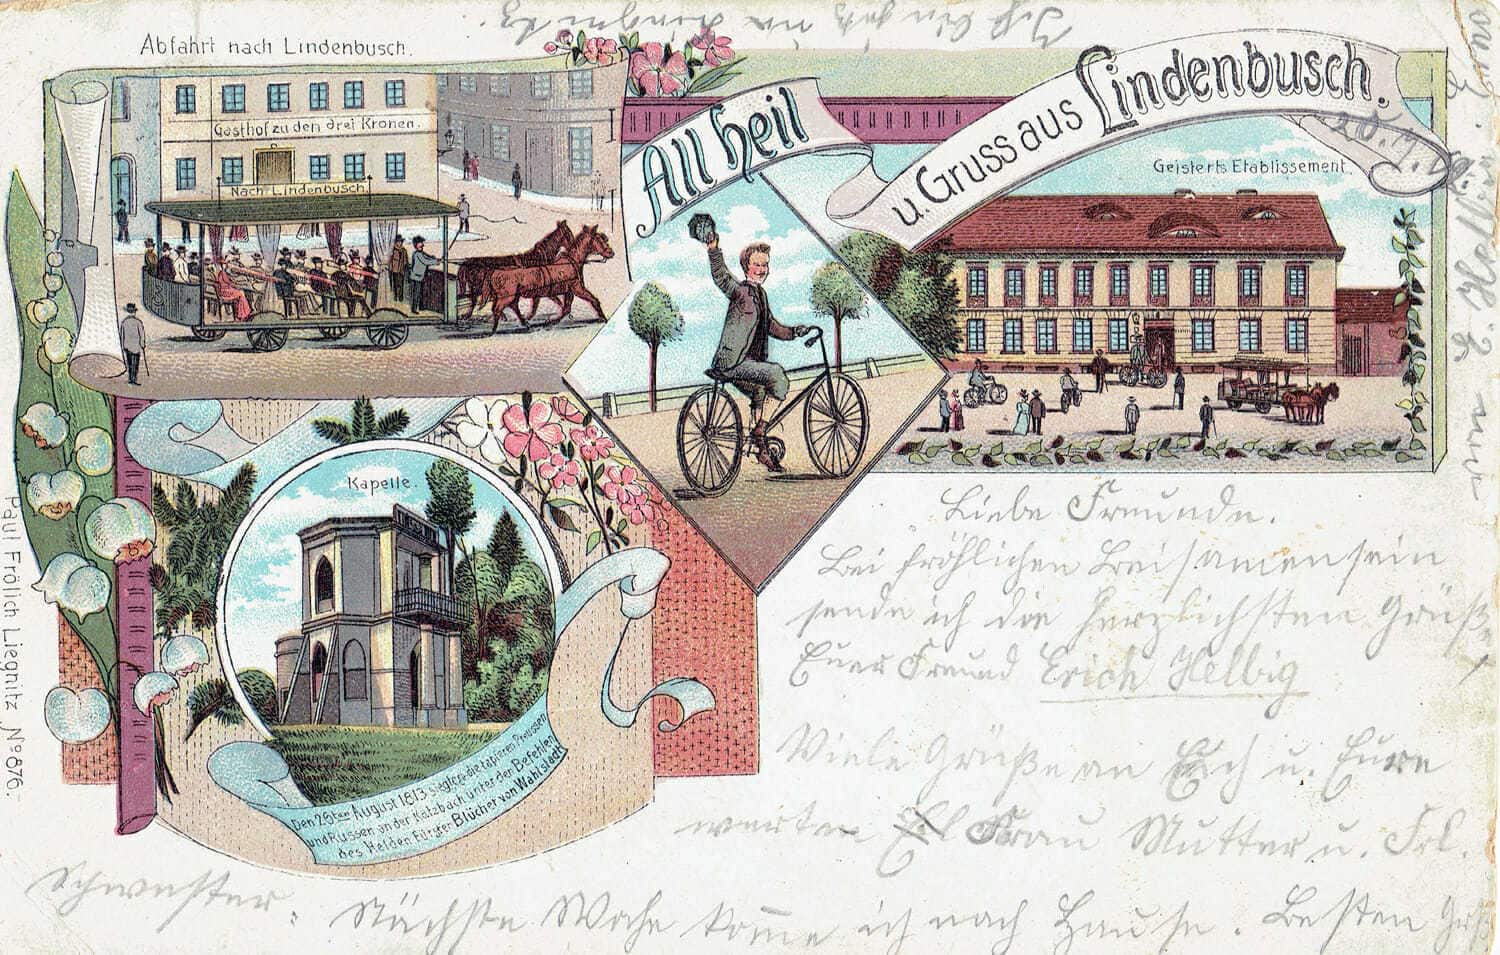 Abfahrt nach Lindenbusch.
Gasthof zu den drei Kronen.
Nach Lindenbusch.
All Heil
u. Gruss aus Lindenbusch.
Geisterts Etablissement.
Kapelle.
Den 26ten August 1813 siegten die tapferen Preussen
und Russen an der Katzbach unter dem Befehle
des Helden Fürsten Blücher von Wahlstadt
Paul Frölich Liegnitz No 876.
Liebe Freunde.
Bei fröhlichen Beisamensein
sende ich die herzlichsten Grüße
Euer Freund Erich Helbig
Viele Grüße an Euch u. Eure
werten Frau Mutter u. Frl.
Schwester. Nächste Woche komme ich nach Hause. Besten Gruß